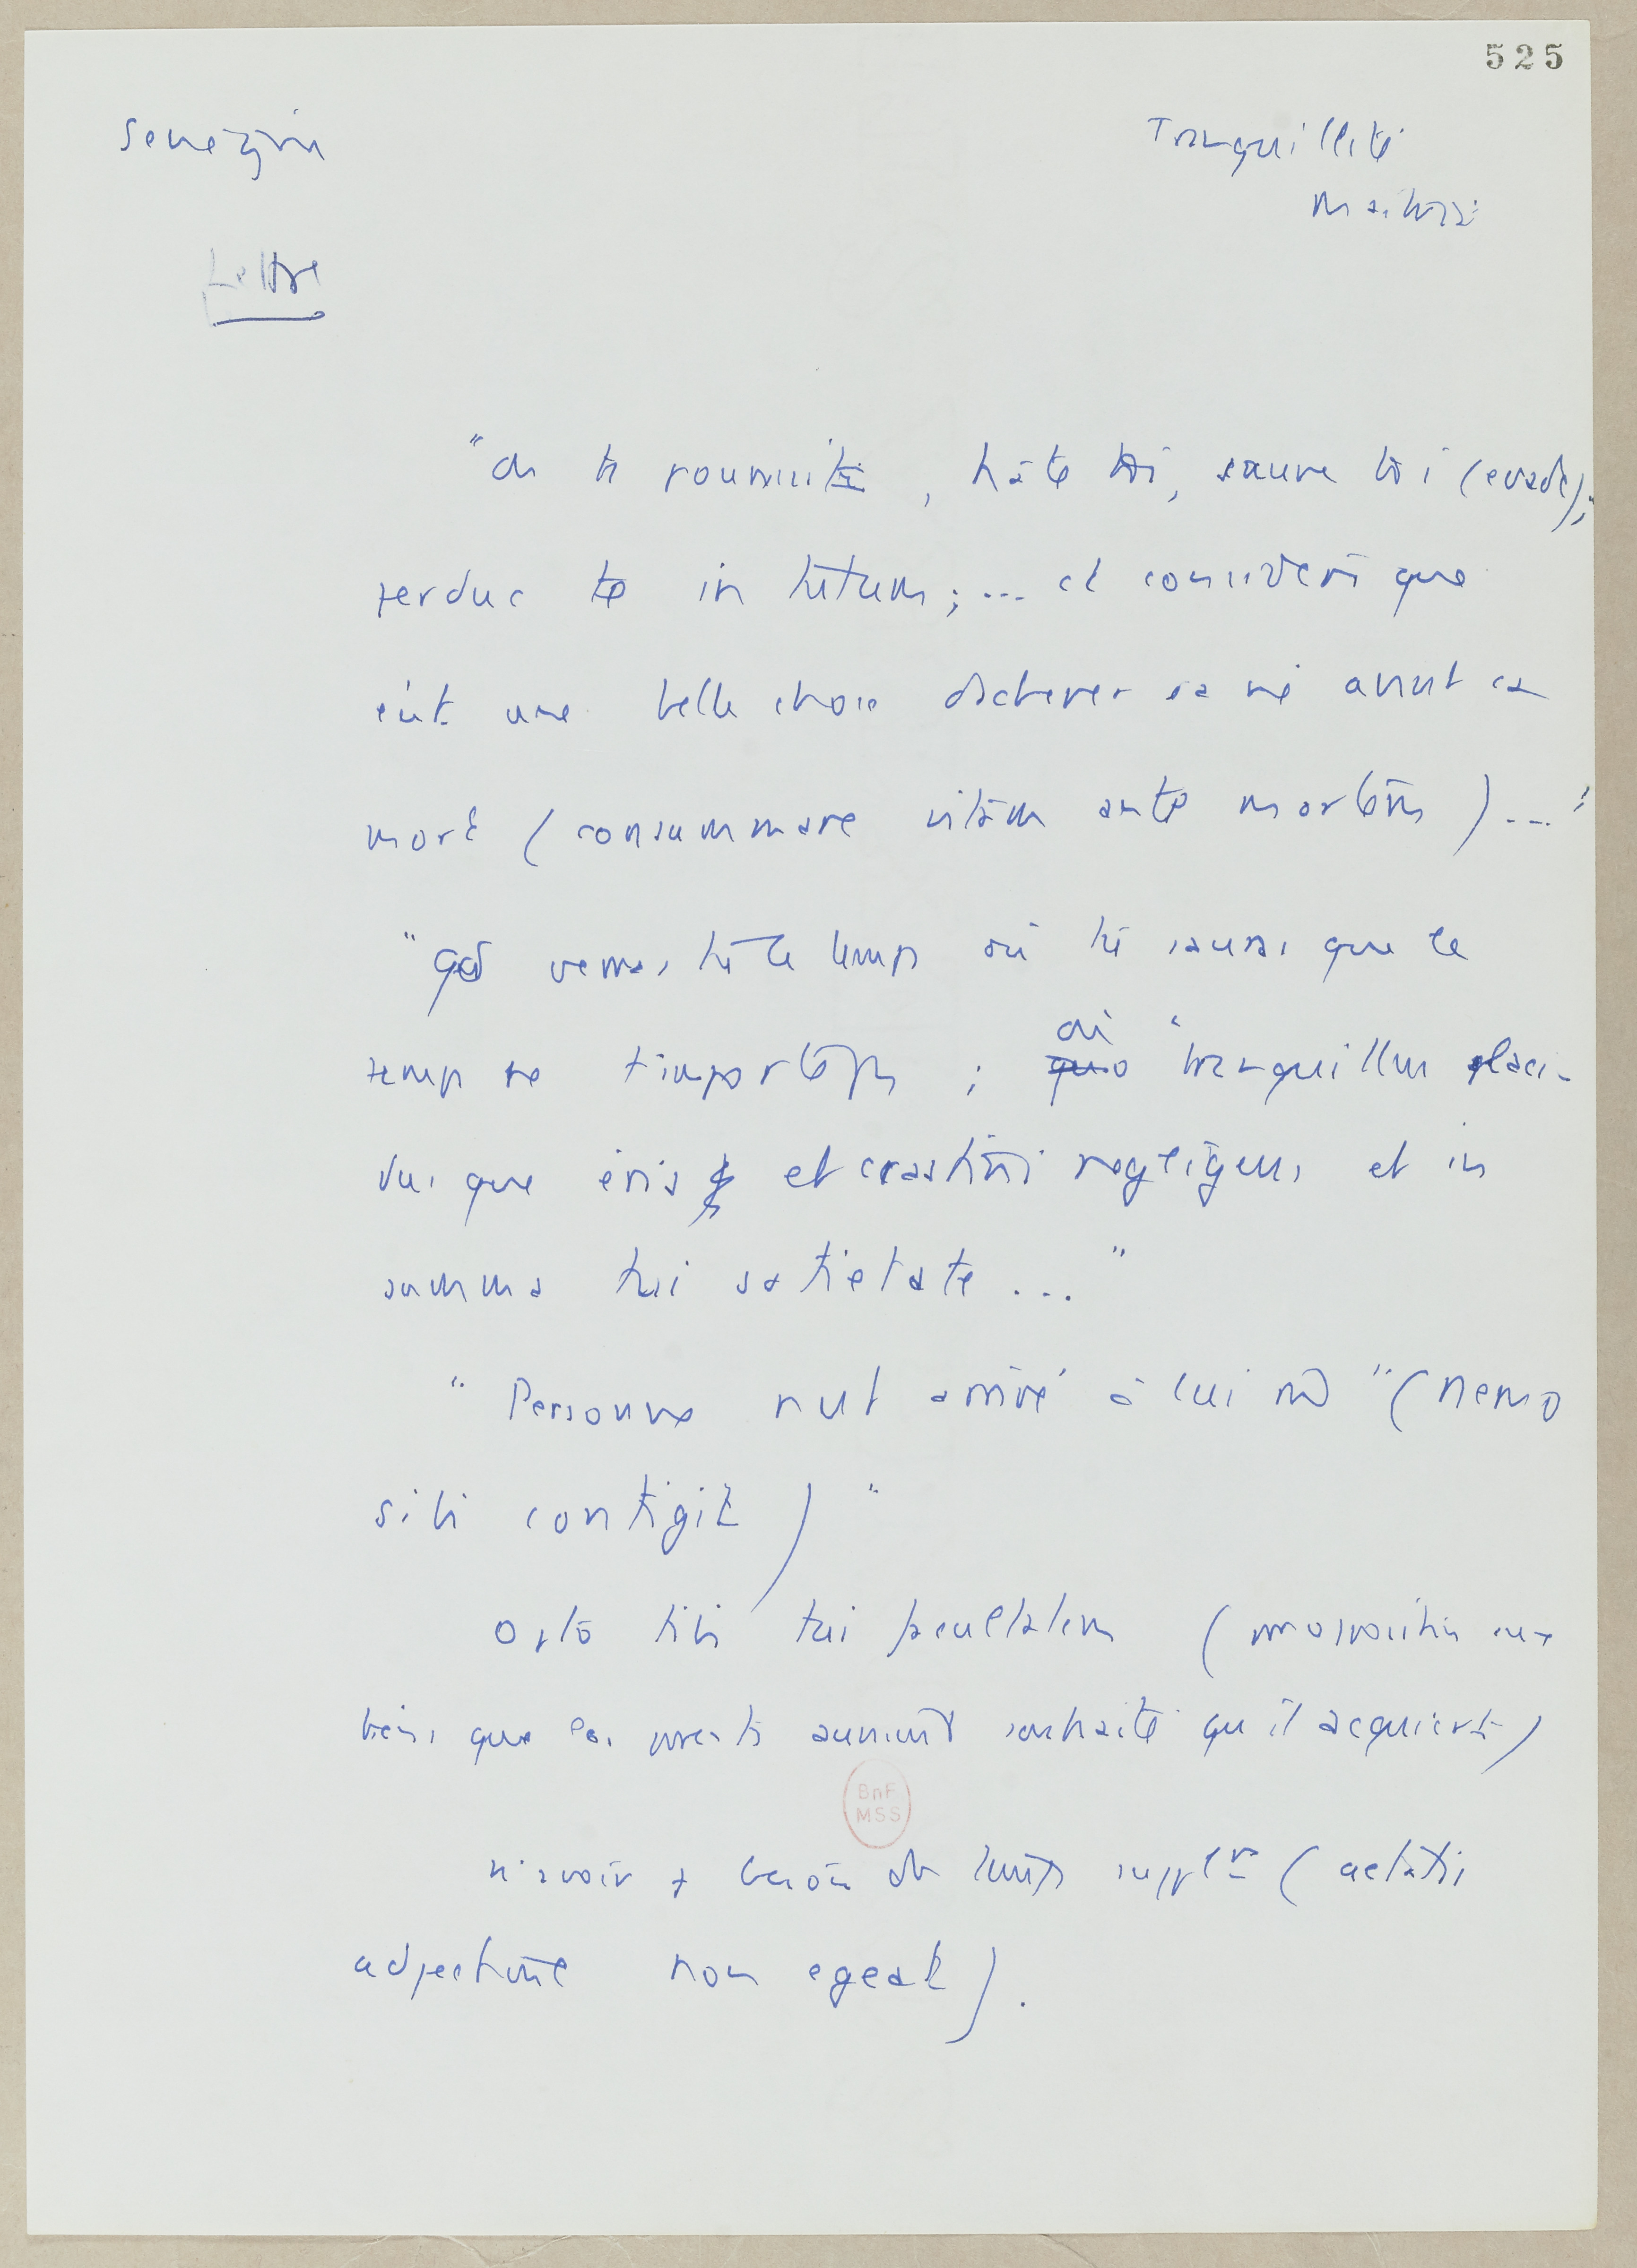 525
Sénèque
Tranquillité
Maîtrise
Lettre
"On te poursuit, hâte toi, sauve toi (evade);
perduc te in tutum; ... et considère que
c'est une belle chose d'achever sa vie avant sa
mort (consummare vitam ante mortem) ...
"qd verras tu le temps où tu sauras que le
temps ne t'importe pas ; où "tranquillus placi-
dusque eris et crastini negligens et in
summa tui satietate ..."
"Personne n'est arrivé à lui m̂ "(Nemo
sibi contigit)"
Opto tibi tui facultatem (par opposition aux
biens que les parents auraient souhaité qu'il acquiert)
n'avoir + besoin de temps supplre (aetatis
adjectione non egeat).
BnF
MSS